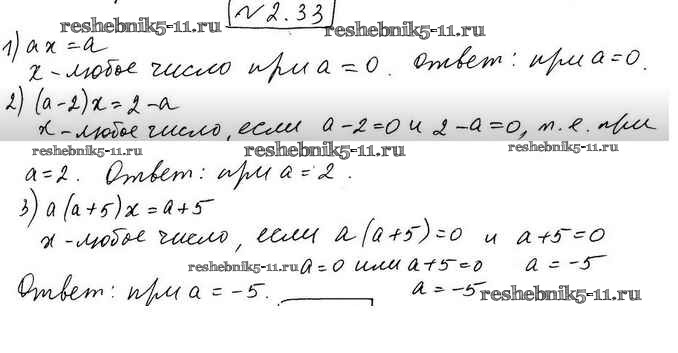 №2.33
reshebnik5-11.ru reshebnik5-11.ru
1) ax = a
x - любое число при a = 0. Ответ: при a = 0.
2) (a-2)x = 2-a
x - любое число, если a-2=0 и 2-a=0, т.е. при
reshebnik5-11.ru reshebnik5-11.ru reshebnik5-11.ru
a = 2. Ответ: при a = 2.
3) a(a+5)x = a+5
x - любое число, если a(a+5)=0 и a+5=0
reshebnik5-11.ru a=0 или a+5=0 a = -5
Ответ: при a = -5. a = -5 reshebnik5-11.ru